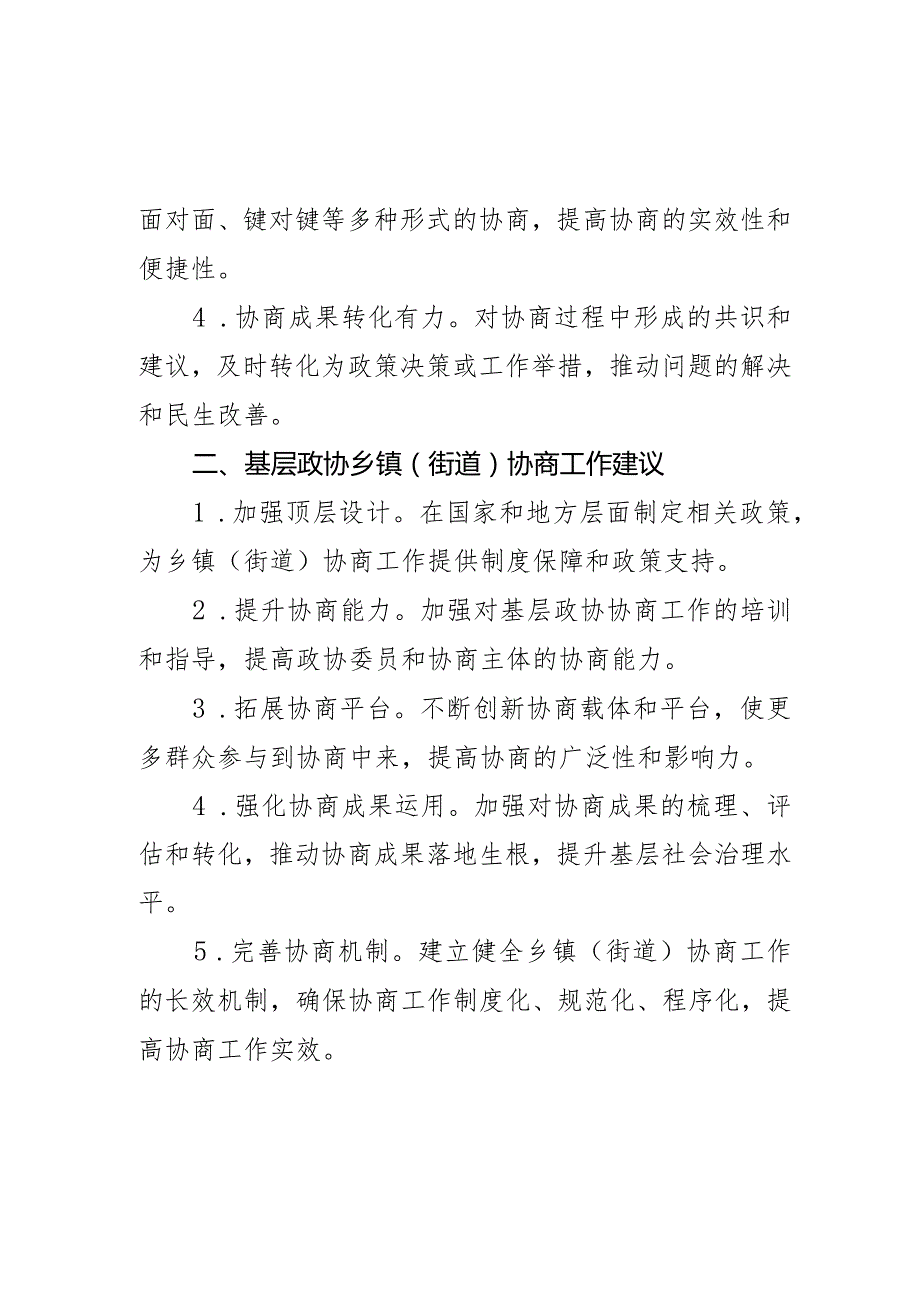 面对面、键对键等多种形式的协商，提高协商的实效性和
便捷性。
4 .协商成果转化有力。对协商过程中形成的共识和
建议，及时转化为政策决策或工作举措，推动问题的解决
和民生改善。
二、基层政协乡镇（街道）协商工作建议
1 .加强顶层设计。在国家和地方层面制定相关政策，
为乡镇（街道）协商工作提供制度保障和政策支持。
2 .提升协商能力。加强对基层政协协商工作的培训
和指导，提高政协委员和协商主体的协商能力。
3 .拓展协商平台。不断创新协商载体和平台，使更
多群众参与到协商中来，提高协商的广泛性和影响力。
4 .强化协商成果运用。加强对协商成果的梳理、评
估和转化，推动协商成果落地生根，提升基层社会治理水
平。
5 .完善协商机制。建立健全乡镇（街道）协商工作
的长效机制，确保协商工作制度化、规范化、程序化，提
高协商工作实效。